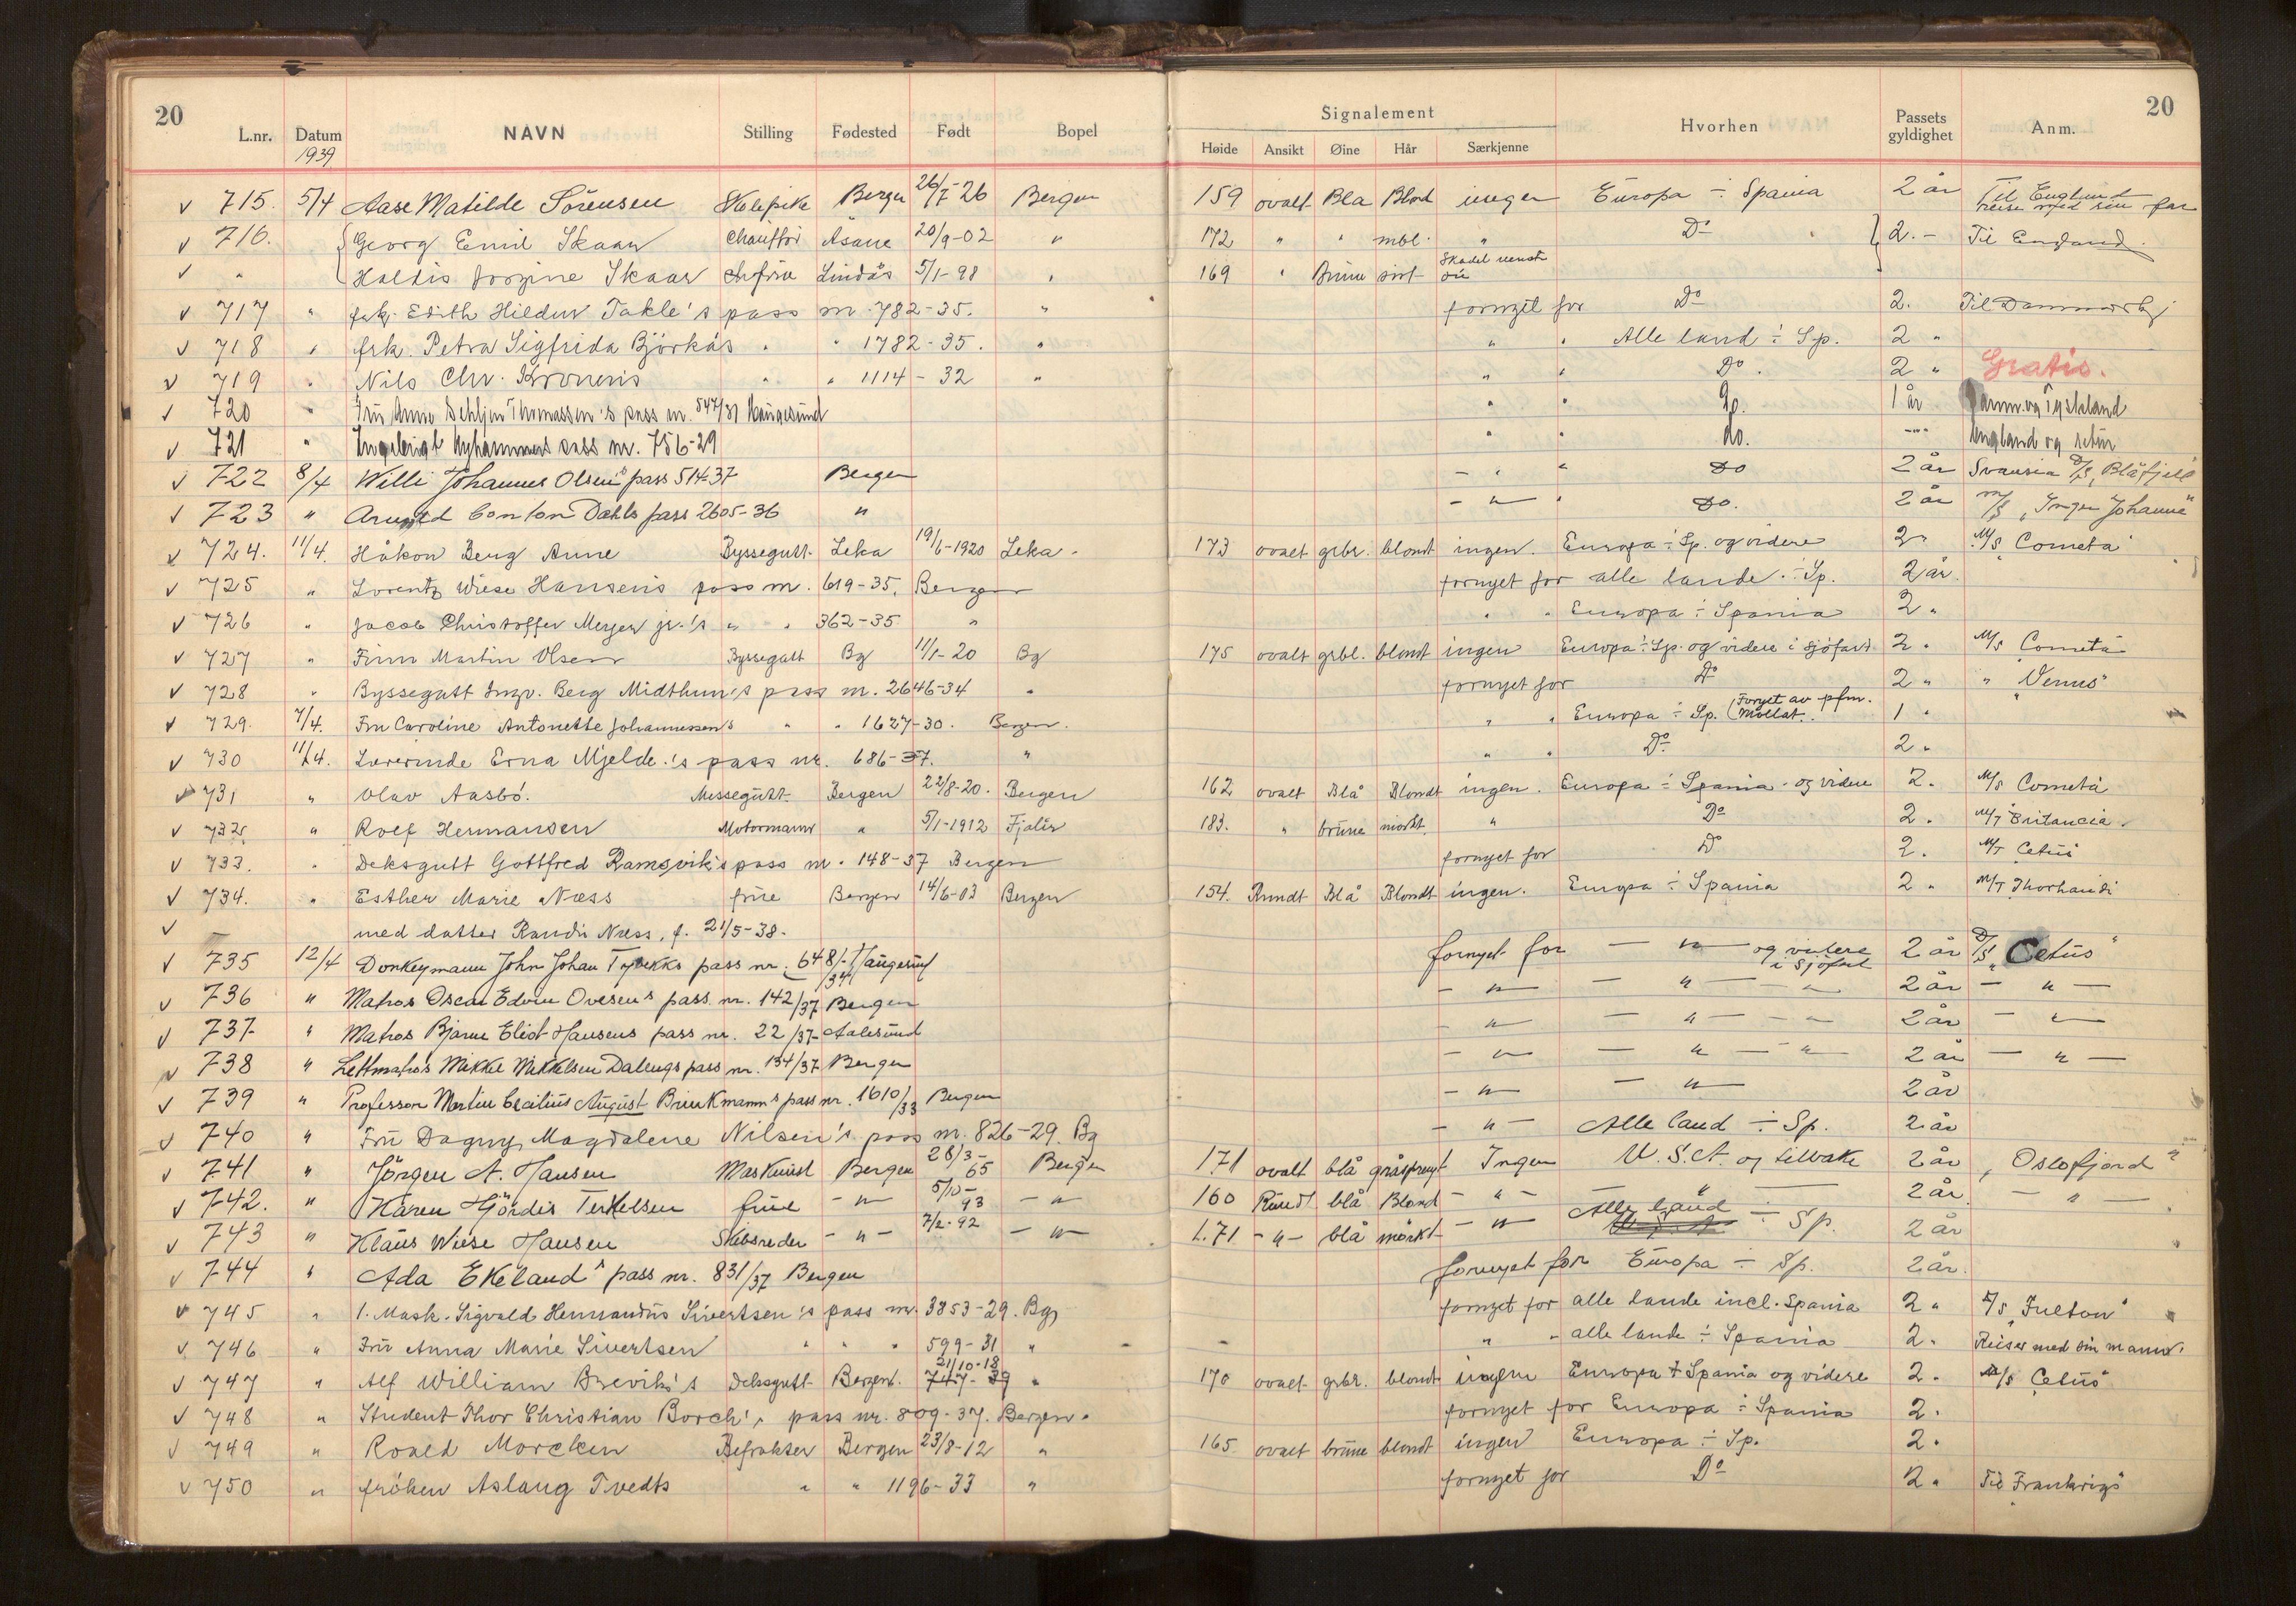 20
20
L.nr. Datum NAVN Stilling Fødested Født Bopel
1939
Signalement Hvorhen Passets gyldighet Anm.
Høide Ansikt Øine Hår Særkjenne
v 715. 5/4 Aase Matilde Sörensen Skolepike Bergen 26/7-26 Bergen 159 ovalt Blå Blond ingen Europa ÷ Spania 2 år Til England reise med sin far
v 716. Georg Emil Skaar Chauffør Åsane 20/9-02 " 172 " " mbl. " Do 2.- Til England.
v " Haldis Jorgine Skaar Lindås 5/1-98 " 169 " Brune sort Skadet venstre öie
v 717 " frk. Edith Hildur Takle's pass nr. 782-35. " fornyet for Do 2. Til Danmark
v 718 " frk. Petra Sigfrida Björkås " " 1782-35. " " " Alle land ÷ Sp. 2 "
v 719 " Nils Chr. " " 1114-32 " " " Do. 2 " Gratis.
v 720 " Fru Anna Thomassen's pass nr. 547/31 Haugesund " " Do. 1 år Danm. og Tyskland
v 721 " pass nr. 756-29 " " do. -"- England og retur
v 722 8/4 Willi Johannes Olsens pass 514-37 Bergen - " " do 2 år D/S "Blåfjell"
v 723 " Arnold Conton Dahls pass 2605-36 " - " - " do. 2 år M/S "Inger Johanne"
v 724. 11/4. Håkon Berg Anne Byssegutt. Leka 19/6-1920 Leka. 173 ovalt grbr. blondt ingen. Europa ÷ Sp. og videre 2 " M/S Cometa
v 725 " Lorentz Wiese Hansen's pass nr. 619-35. Bergen fornyet for alle lande ÷ Sp. 2 år.
v 726 " Jacob Christoffer Meyer jr.'s " " 362-35 " " " Europa ÷ Spania 2 "
v 727 " Finn Martin Olsen Byssegutt Bg 11/1-20 Bg 175 ovalt grbl. blondt ingen Europa ÷ Sp. og videre i sjöfart 2 " M/S Cometa
v 728 " Byssegutt Ingv. Berg Midthun's pass nr. 2646-34 " fornyet for Do 2 " " "Venus"
v 729. 7/4. Fru Caroline Antonette Johannessen's " " 1627-30. Bergen. " " Europa ÷ Sp. (Fornyet av pfm. Mollat. 1 "
v 730 11/4. Lærerinde Erna Mjelde's pass nr. 686-37. " " " Do 2 "
v 731 " Olav Aasbö. Messegutt. Bergen 22/8-20. Bergen 162 ovalt Blå Blondt ingen. Europa ÷ Spania og videre 2. M/S Cometa
v 732. " Rolf Hermansen Motormann " 5/1-1912 Fjaler 183. " brune mörkt " Do 2. M/T Britancia.
v 733. " Deksgutt Gottfred Ramsvik's pass nr. 148-37 Bergen fornyet for Do 2. M/T Cetus
v 734. " Esther Marie Næss frue Bergen 14/6-03 Bergen 154. Rundt Blå Blondt ingen. Europa ÷ Spania 2 " M/T
v med datter Randi Næss, f. 21/5-38.
v 735 12/4 Donkeymann John Johan pass nr. 648/34 Haugesund fornyet for - " - og videre i sjöfart 2 år D/S "Cetus"
v 736 " Matros Oscar Edvin Ovesens pass nr. 142/37 Bergen - " - - " - - " - 2 år - " -
v 737 " Matros Bjarne Eliot Hansens pass nr. 22/37 Aalesund - " - - " - - " - 2 år - " -
v 738 " Lettmatros Mikkel Mikkelsen Dalengs pass nr. 134/37 Bergen - " - - " - - " - 2 år - " -
v 739 " Professor Martin Cecilius August Brinkmanns pass nr. 1610/33 Bergen - " - - " - 2 år
v 740 " Fru Dagny Magdalene Nilsen's pass nr. 826-29. Bg - " - Alle land ÷ Sp. 2 år
v 741 " Jörgen A. Hansen Maskinist Bergen 28/3-65 Bergen 171 ovalt blå gråsprengt Ingen U.S.A. og tilbake 2 år "Oslofjord"
v 742. " Karen Hjördis Terkelsen frue - " - 5/10-93 - " - 160 Rundt blå Blond - " - " 2 år - " -
v 743 " Klaus Wiese Hansen Skibsreder - " - 7/2-92 - " - 1.71 - " - blå mörkt - " - Alle land ÷ Sp. 2 år
v 744 " Ada Ekelands pass nr. 831/37 Bergen fornyet for Europa ÷ Sp. 2 år.
v 745 " 1. Mask. Sigvald Hermandus Sivertsen's pass nr. 3853-29. Bg fornyet for alle lande incl. Spania 2 " D/S "Fulton"
v 746 " Fru Anna Marie Sivertsen " " " 599-31 " " " alle lande ÷ Spania 2. Reiser med sin mann.
v 747 " Alf William Brevik's Deksgutt Bergen. 21/10-18 747-39 " 170 ovalt grbr. blondt ingen Europa ÷ Spania og videre 2. M/S Cetus
v 748 " Student Thor Christian Borch's pass nr. 809-37. Bergen. fornyet for Europa ÷ Spania 2.
v 749 " Roald Morcken Befrakter Bergen 23/8-12 " 165 ovalt brune blondt ingen Europa ÷ Sp. 2.
v 750 " fröken Aslaug Tvedts " " 1196-33 " fornyet for Do 2 " Til Frankrig